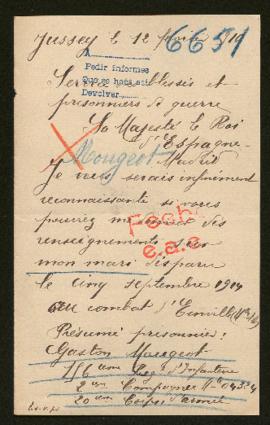 Jussey le 12 1916
6651
A
Pedir informes
Que se haga así
Devolver
Service blessés et
prisonniers de guerre
Sa Majesté le Roi
d'Espagne
Mougeot Madrid
Je vous serais infiniment
reconnaissante si vous
pouviez des
renseignements sur
mon mari disparu
le cinq septembre 1914
au combat d'Einville
Présumé prisonnier:
Gaston Mougeot
156ème Rég. d'Infanterie
2ème Compagnie
20ème Corps d'armée
Fech.
e.a.e.